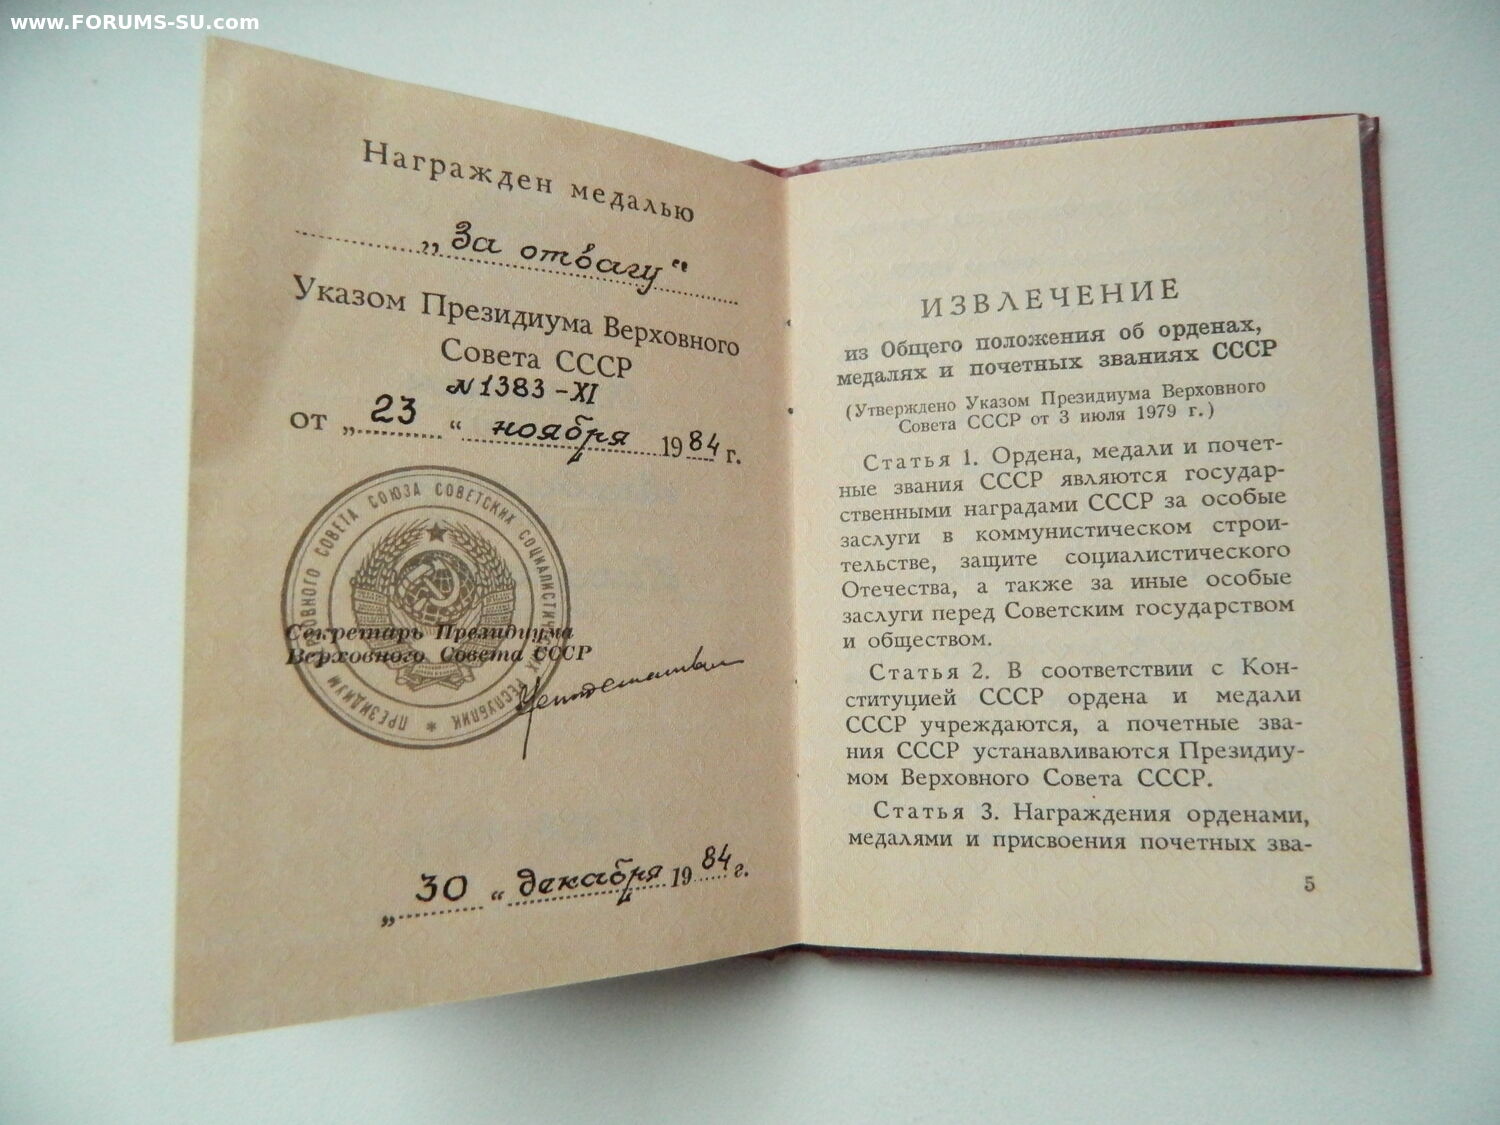 www.FORUMS-SU.com
Награжден медалью
„За отвагу"
Указом Президиума Верховного
Совета СССР
№1383-XI
от „23“ ноября 1984 г.
ПРЕЗИДИУМ ВЕРХОВНОГО СОВЕТА СОЮЗА СОВЕТСКИХ СОЦИАЛИСТИЧЕСКИХ РЕСПУБЛИК *
Секретарь Президиума
Верховного Совета СССР
„30“ декабря 1984 г.
ИЗВЛЕЧЕНИЕ
из Общего положения об орденах,
медалях и почетных званиях СССР
(Утверждено Указом Президиума Верховного
Совета СССР от 3 июля 1979 г.)
Статья 1. Ордена, медали и почет-
ные звания СССР являются государ-
ственными наградами СССР за особые
заслуги в коммунистическом строи-
тельстве, защите социалистического
Отечества, а также за иные особые
заслуги перед Советским государством
и обществом.
Статья 2. В соответствии с Кон-
ституцией СССР ордена и медали
СССР учреждаются, а почетные зва-
ния СССР устанавливаются Президиу-
мом Верховного Совета СССР.
Статья 3. Награждения орденами,
медалями и присвоения почетных зва-
5